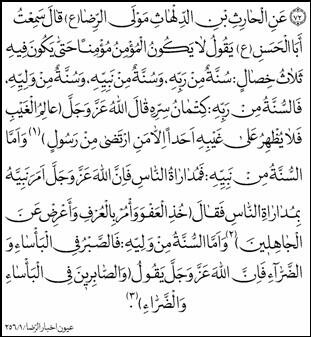 ٧٢ عَنِ الْحَارِثِ بْنِ الدِّلْهَاثِ مَوْلَى الرِّضَا(ع) قَالَ سَمِعْتُ
أَبَا الْحَسَنِ(ع) يَقُولُ لَا يَكُونُ الْمُؤْمِنُ مُؤْمِنًا حَتَّى يَكُونَ فِيهِ
ثَلَاثُ خِصَالٍ: سُنَّةٌ مِنْ رَبِّهِ، وَسُنَّةٌ مِنْ نَبِيِّهِ، وَسُنَّةٌ مِنْ وَلِيِّهِ،
فَالسُّنَّةُ مِنْ رَبِّهِ: كِتْمَانُ سِرِّهِ قَالَ اللهُ عَزَّ وَجَلَّ (عَالِمُ الْغَيْبِ
فَلَا يُظْهِرُ عَلَى غَيْبِهِ أَحَداً إِلَّا مَنِ ارْتَضَى مِنْ رَسُولٍ) (١) وَأَمَّا
السُّنَّةُ مِنْ نَبِيِّهِ: فَمُدَارَاةُ النَّاسِ فَإِنَّ اللهَ عَزَّ وَجَلَّ أَمَرَ نَبِيَّهُ
بِمُدَارَاةِ النَّاسِ فَقَالَ (خُذِ الْعَفْوَ وَأْمُرْ بِالْعُرْفِ وَأَعْرِضْ عَنِ
الْجَاهِلِينَ) (٢) وَأَمَّا السُّنَّةُ مِنْ وَلِيِّهِ: فَالصَّبْرُ فِي الْبَأْسَاءِ وَ
الضَّرَّاءِ فَإِنَّ اللهَ عَزَّ وَجَلَّ يَقُولُ (وَالصَّابِرِينَ فِي الْبَأْسَاءِ
وَالضَّرَّاءِ) (٣).
عيون اخبار الرضا/١/٢٥٦